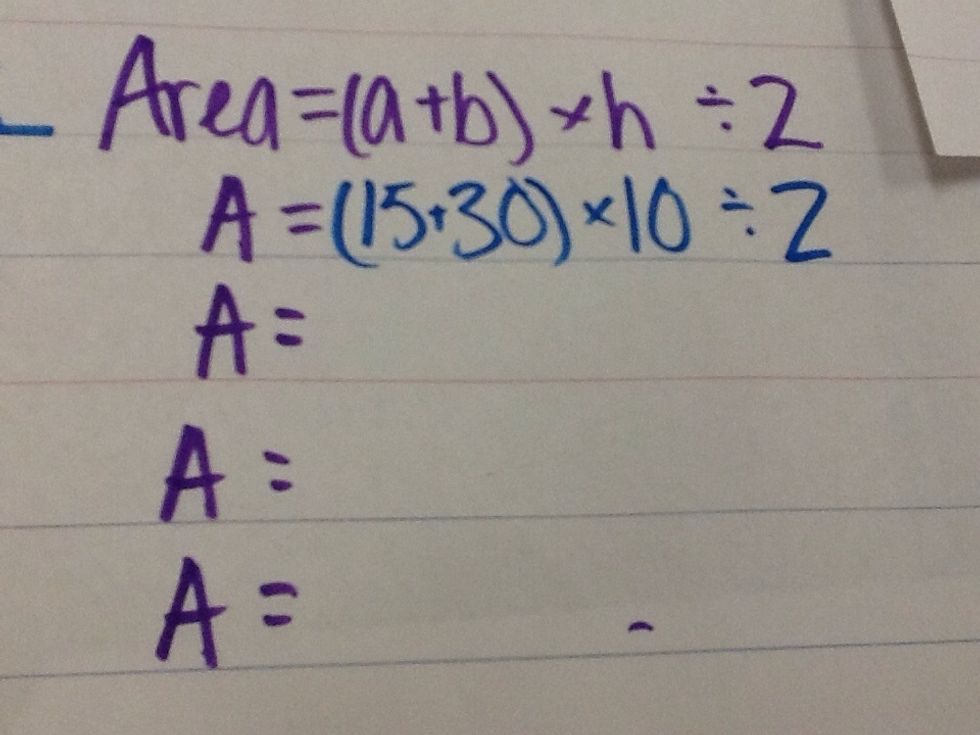 Area=(a+b)×h ÷2
A =(15+30)×10 ÷2
A =
A =
A =